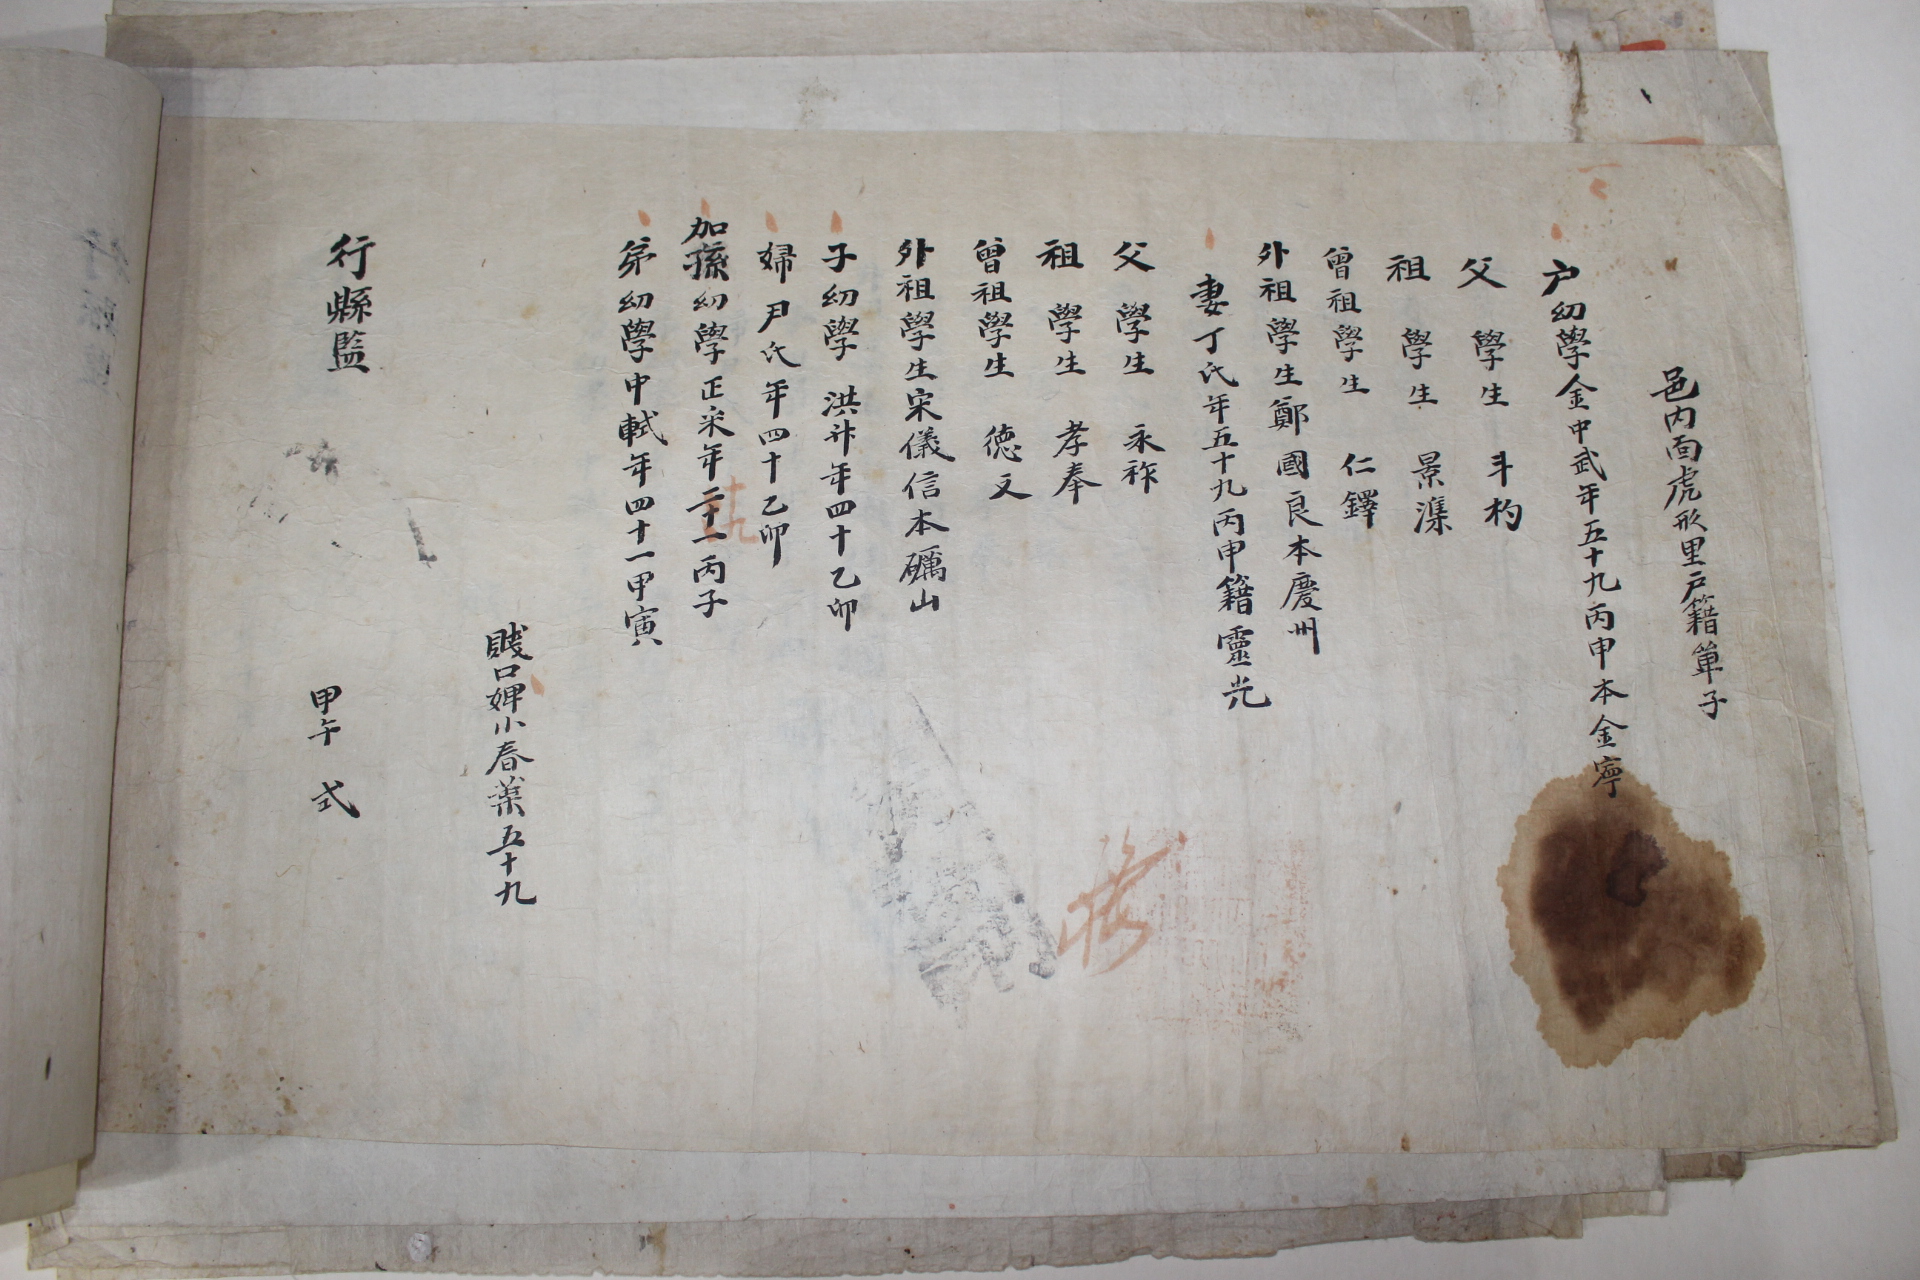 邑内面虎形里戶籍單子
户幼學金中武年五十九丙申本金寧
父 學生 斗杓
祖 學生 景潗
曾祖學生 仁鐸
外祖學生鄭國良本慶州
妻丁氏年五十九丙申籍靈光
父 學生 永祚
祖 學生 孝奉
曾祖學生 德文
外祖學生宋儀信本礪山
子幼學 洪 年四十乙卯
婦尹氏年四十乙卯
加孫幼學正采年二十一丙子
十九
弟幼學中軾年四十一甲寅
賤口婢小春葉五十九
行縣監
甲午 式